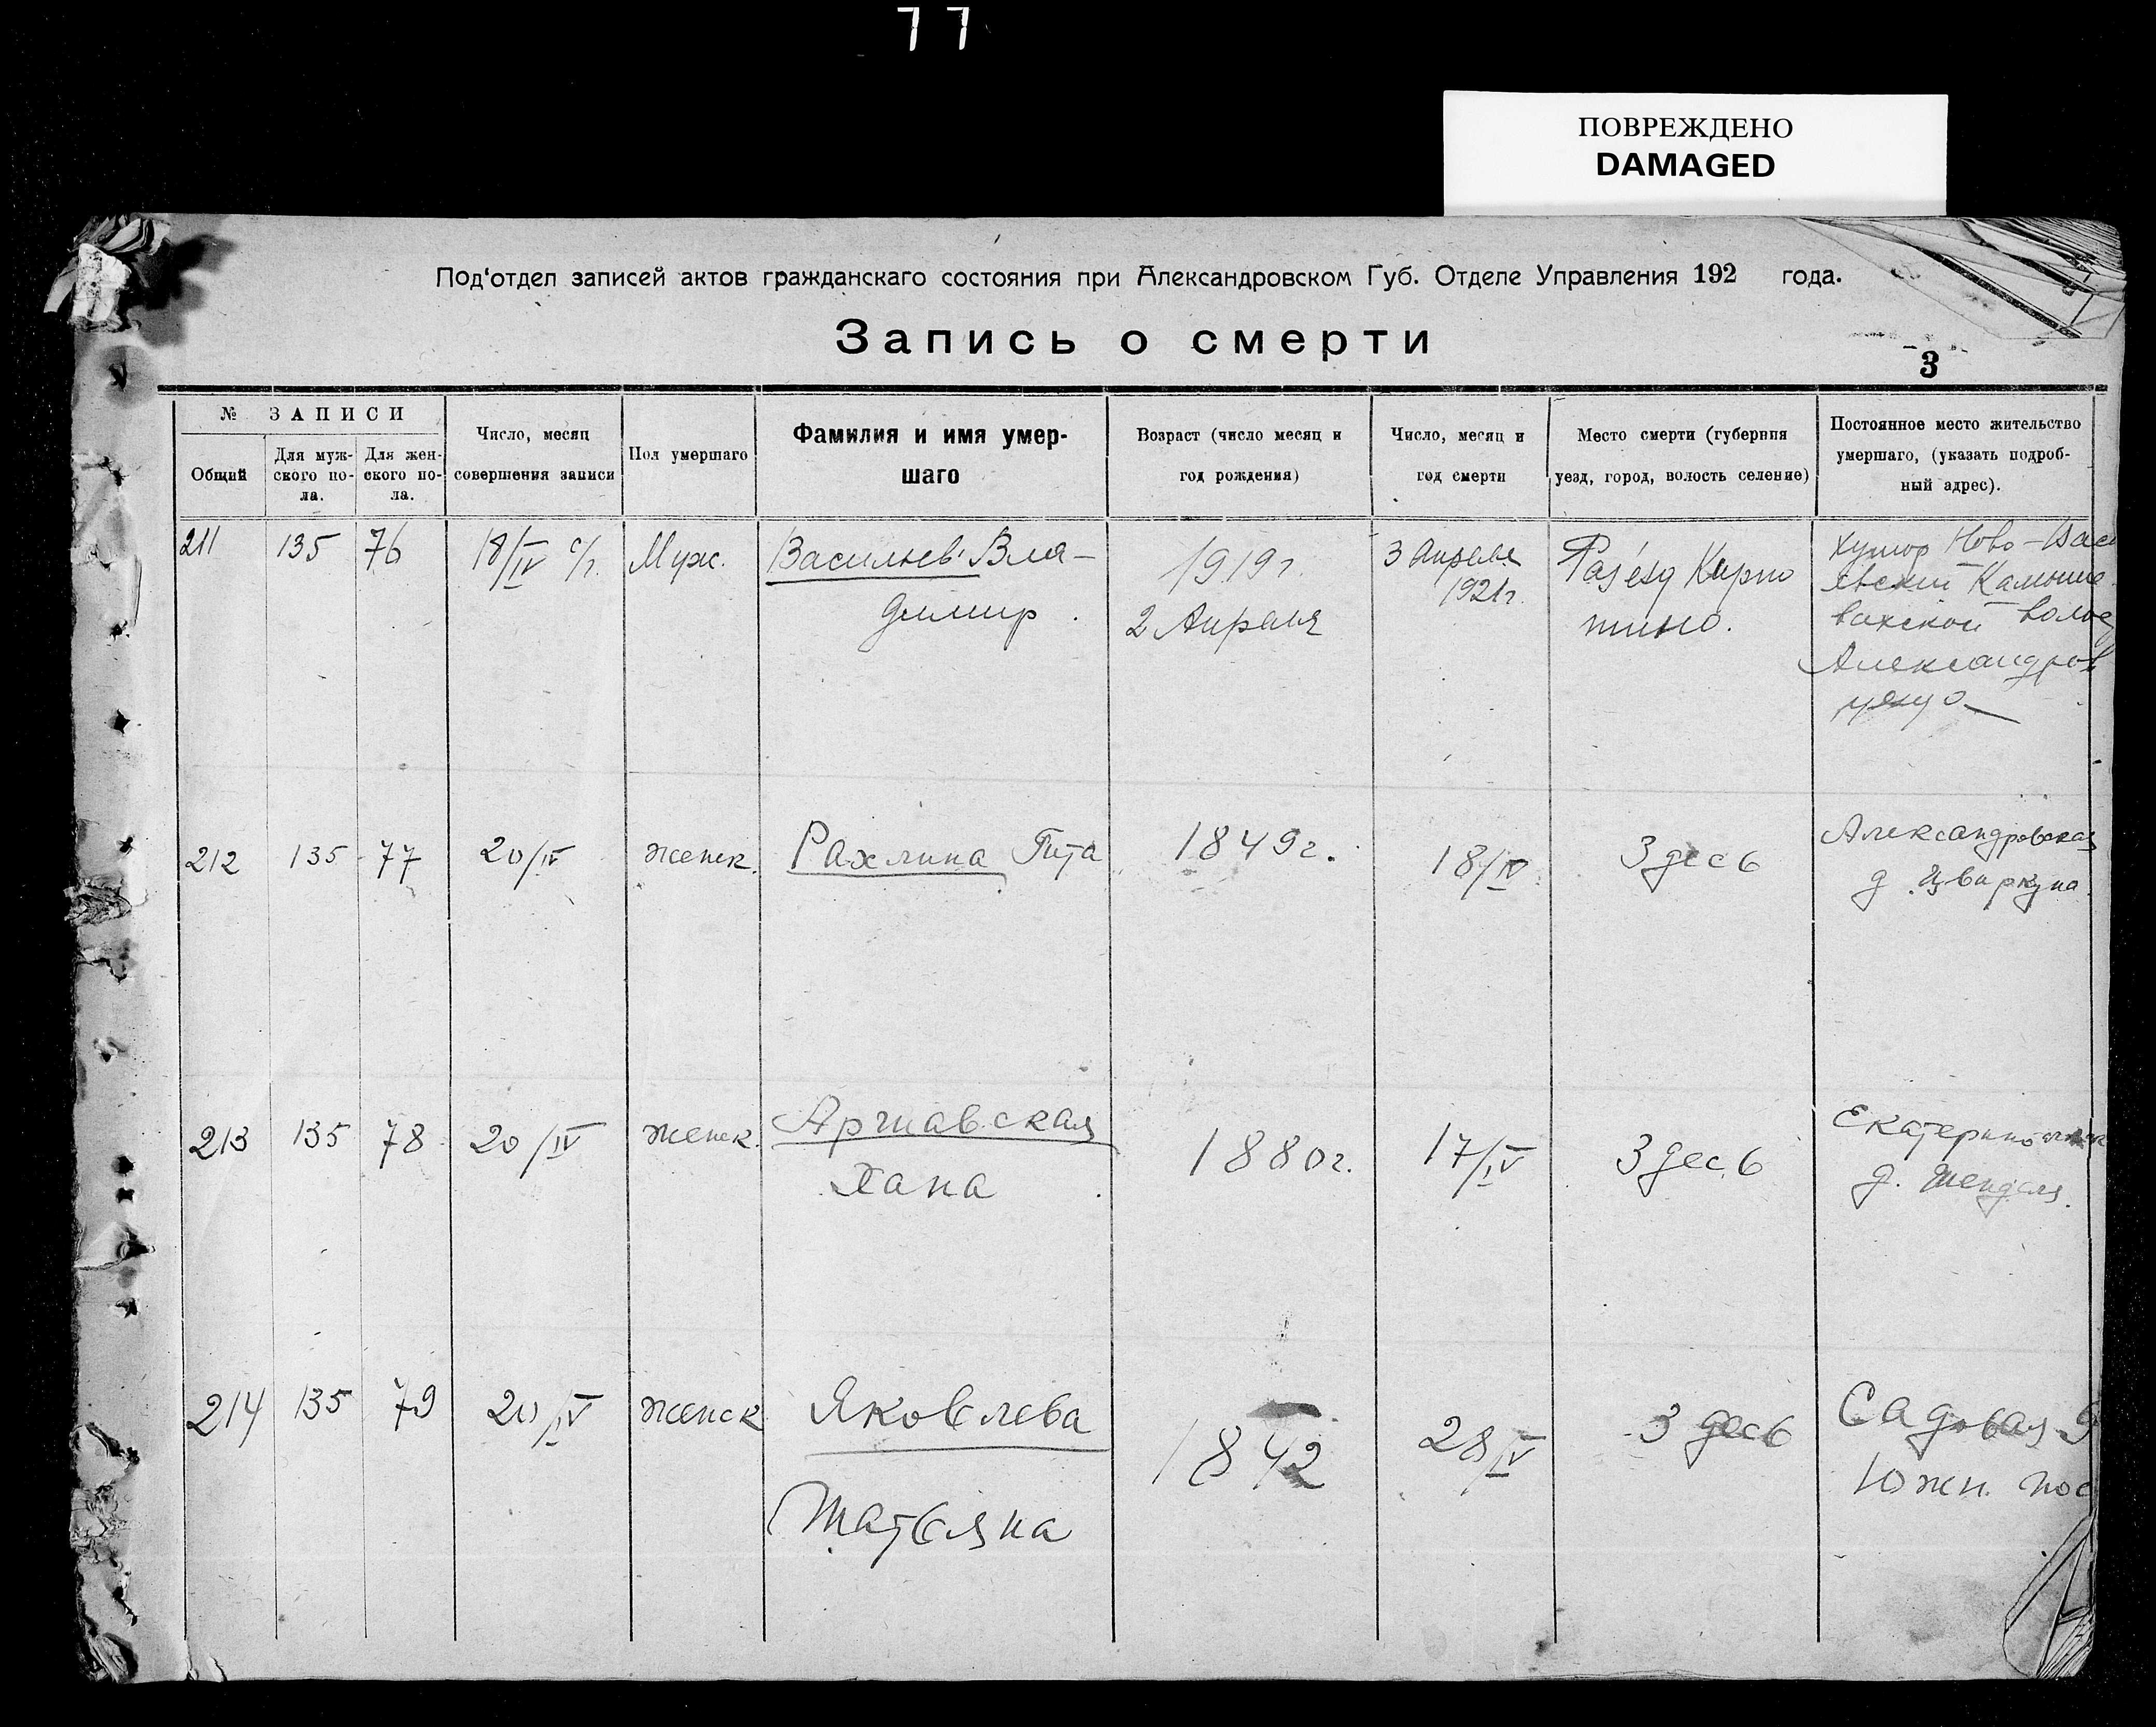 77
ПОВРЕЖДЕНО
DAMAGED
Под'отдел записей актов гражданскаго состояния при Александровском Губ. Отделе Управления 192 года.
Запись о смерти
3
№ ЗАПИСИ
Общий
Для муж-
ского по-
ла.
Для жен-
ского по-
ла.
Число, месяц
совершения записи
Пол умершаго
Фамилия и имя умер-
шаго
Возраст (число месяц и
год рождения)
Число, месяц и
год смерти
Место смерти (губерния
уезд, город, волость селение)
Постоянное место жительство
умершаго, (указать подроб-
ный адрес).
211 135 76 18/IV с/г. Муж. Васильев Вла-
димир
1919 г.
2 Апреля
3 Апреля
1921 г.
Раз'езд
Хутор Ново-
волос
Александров
212 135 77 20/IV женск. Рахлина Гита 1849 г. 18/IV Здесь Александровская
д.
213 135 78 20/IV женск.
Хана
1880 г. 17/IV Здесь
д.
214 135 79 20/IV женск Яковлева
Татьяна
1842 28/IV Здесь Садовая 9
Южн. пос